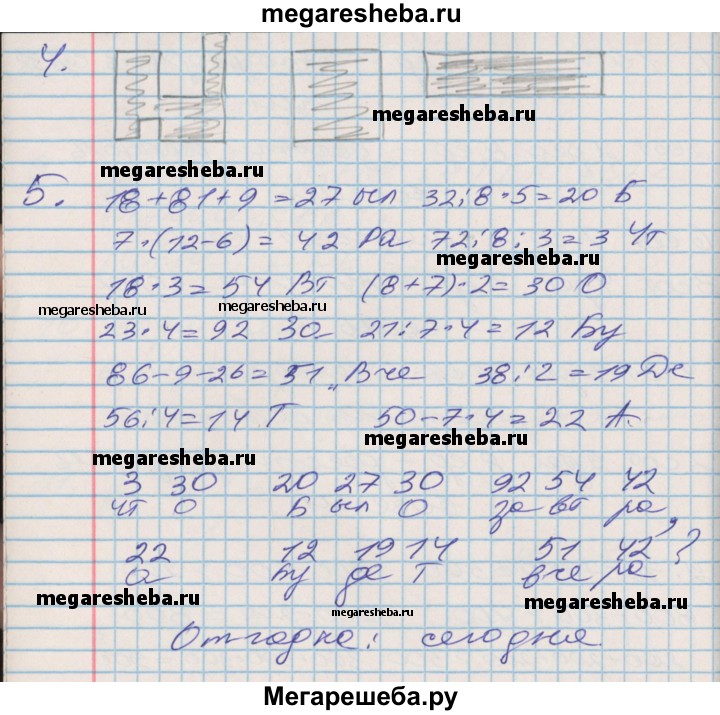 megaresheba.ru
4.
megaresheba.ru
megaresheba.ru
5. 18+81+9=27 ыл 32:8·5=20 Б
7·(12-6)=42 Ра 72:8:3=3 Чт
megaresheba.ru
18·3=54 Вт (8+7)·2=30 О
megaresheba.ru megaresheba.ru
23·4=92 За 21:7·4=12 Бу
86-9-26=51 „Вче 38:2=19 Де
56:4=14 Т 50-7·4=22 А.
megaresheba.ru
megaresheba.ru
3 30 20 27 30 92 54 42
чт о Б ыл О за вт ра,
22 12 19 14 51 42 ?
а бу де т вче ра
megaresheba.ru megaresheba.ru
megaresheba.ru
Отгадка: сегодня
megaresheba.ru
Мегарешеба.ру